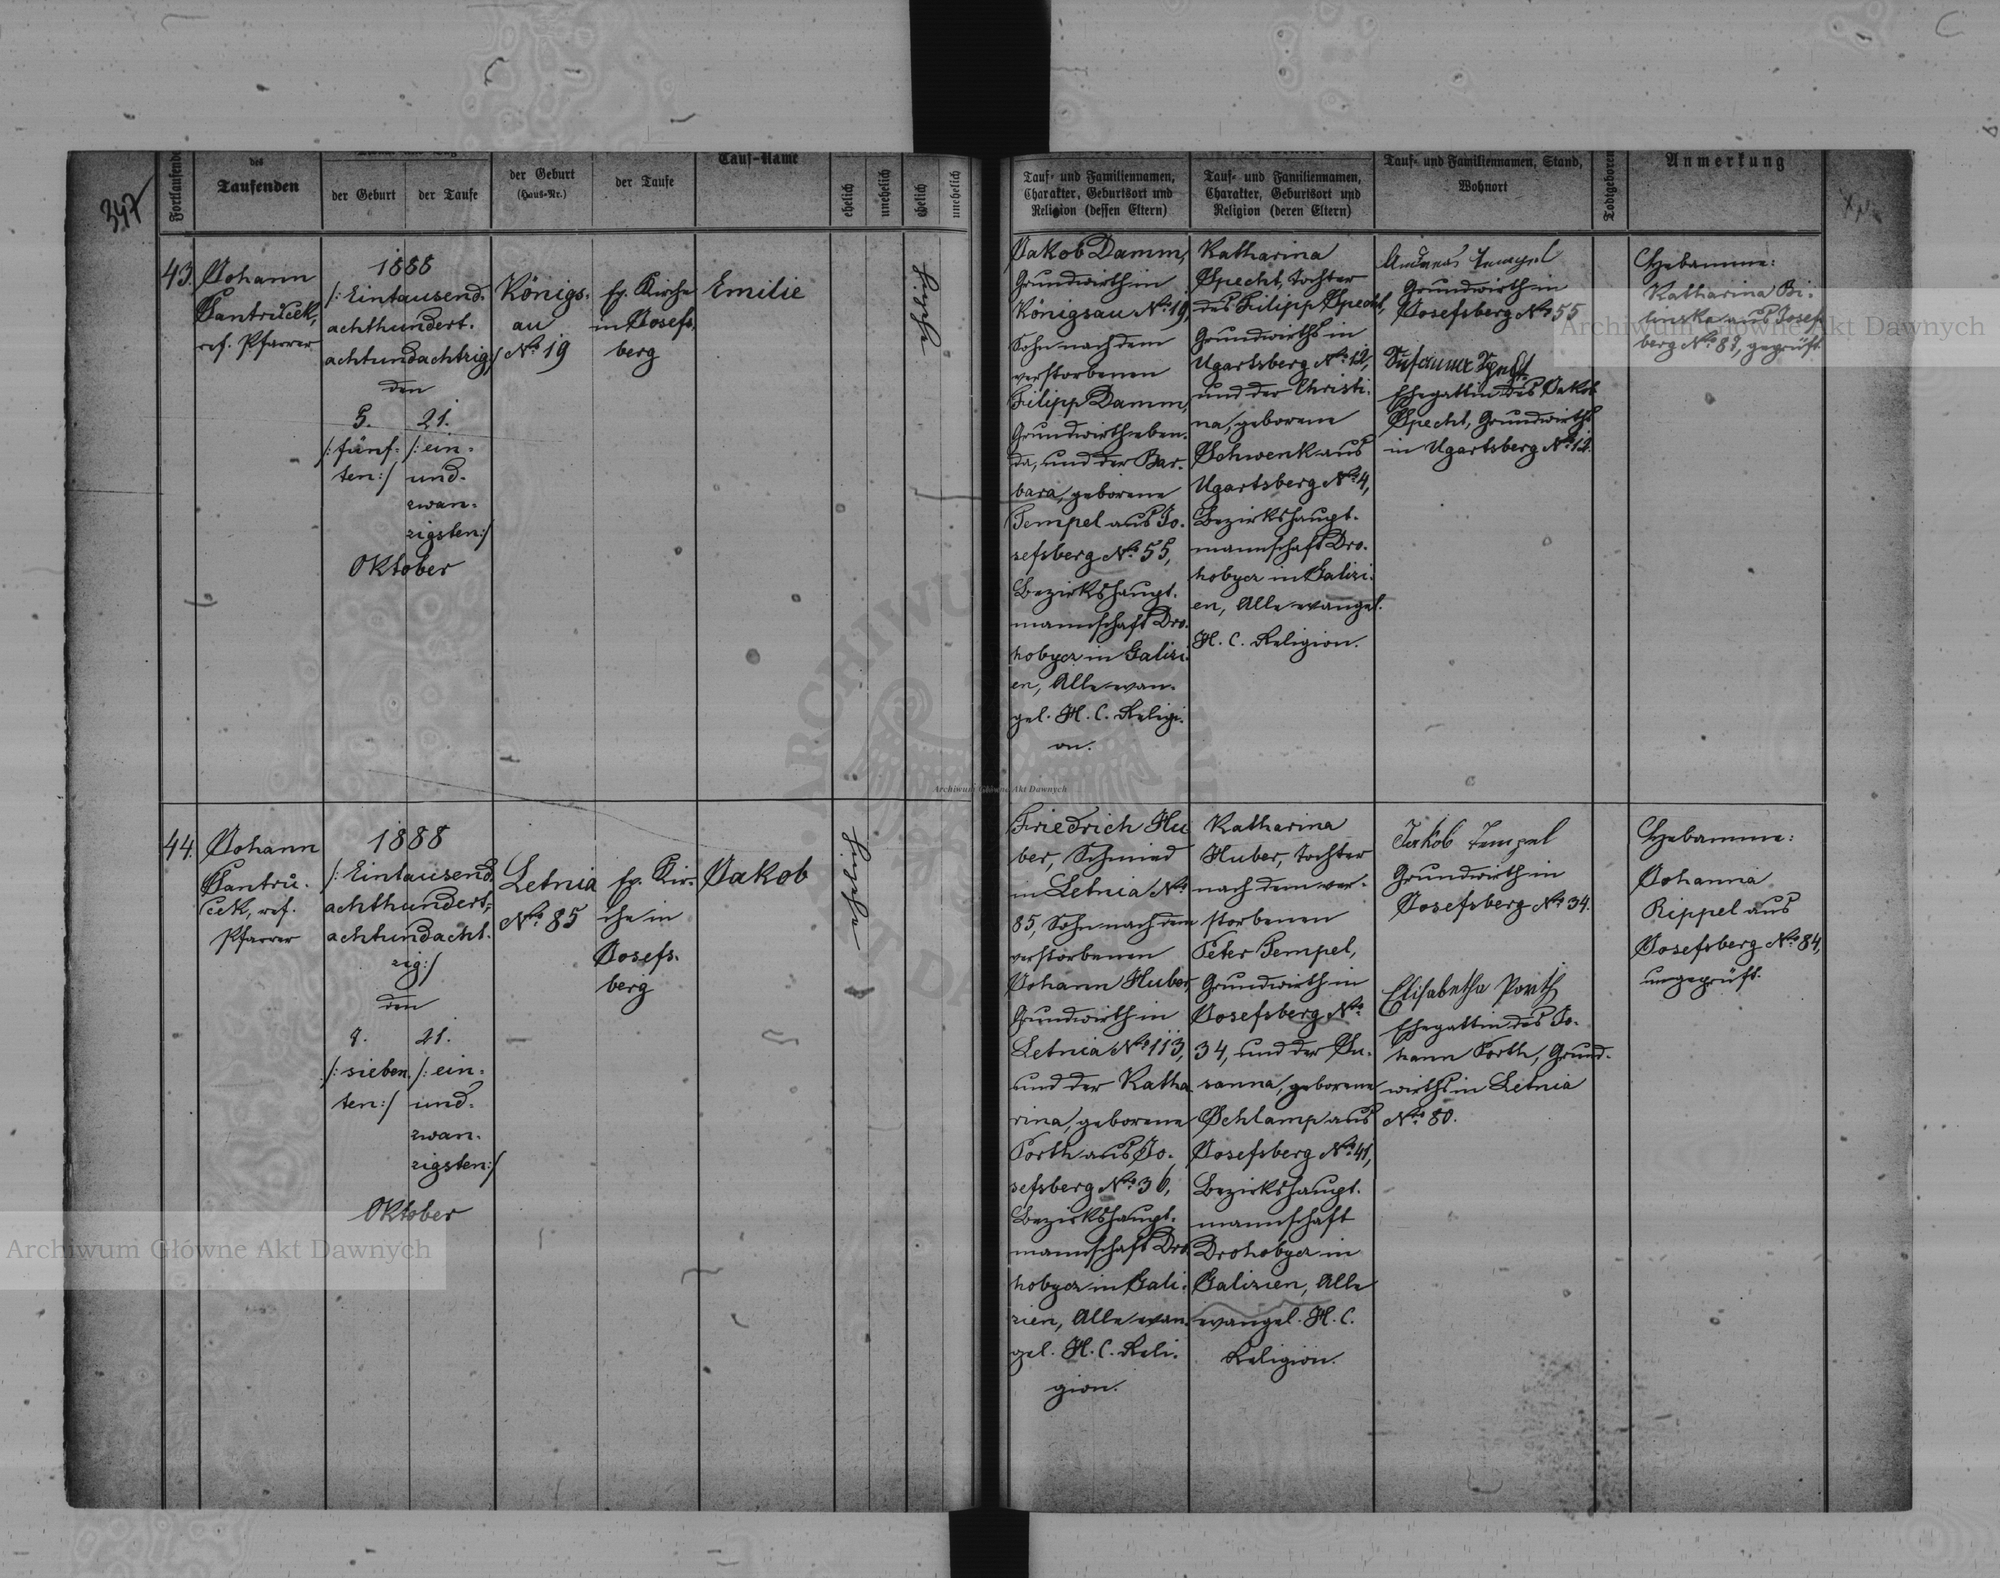 347
Fortlaufende
des
Taufenden
der Geburt
der Taufe
der Geburt
(Haus-Nr.)
der Taufe
Tauf-Name
ehelich
unehelich
ehelich
unehelich
Tauf- und Familiennamen,
Charakter, Geburtsort und
Religion (dessen Eltern)
Tauf- und Familiennamen,
Charakter, Geburtsort und
Religion (deren Eltern)
Tauf- und Familiennamen, Stand,
Wohnort
Todtgeboren
Anmerkung
43.
Johann
Jantrucek,
ref. Pfarrer
1888
/: Eintausend-
achthundert-
achtundachtzig/
den
5. 21.
/: fünf- /: ein-
ten:/ und-
zwan-
zigsten:/
Oktober
Königs-
au
No 19
ev. Kirche
in Josefs-
berg
Emilie
eheliche
Jakob Damm,
Grundwirth in
Königsau No 19,
Sohn nach dem
verstorbenen
Filipp Damm,
Grundwirth eben-
da, und der Bar-
bara, geborene
Tempel aus Jo-
sefsberg No 55,
Bezirkshaupt-
mannschaft Dro-
hobycz in Galizi-
en, Alle evan-
gel. H. C. Religi-
on.
Katharina
Specht, Tochter
des Filipp Specht,
Grundwirths in
Ugartsberg No 12,
und der Christi-
na, geborene
Schwenk aus
Ugartsberg No 4,
Bezirkshaupt-
mannschaft Dro-
hobycz in Galizi-
en, Alle evangel.
H. C. Religion.
Andreas Tempel
Grundwirth in
Josefsberg No 55
Susanna Specht
Ehegattin des Jakob
Specht, Grundwirths
in Ugartsberg No 12.
Hebamme:
Katharina Bi-
linska aus Josefs-
berg No 88, geprüft
Archiwum Główne Akt Dawnych
Archiwum Główne Akt Dawnych
44.
Johann
Jantru-
cek, ref.
Pfarrer
1888
/: Eintausend-
achthundert-
achtundacht-
zig:/
den
7. 21.
/: sieben- /: ein-
ten:/ und-
zwan-
zigsten:/
Oktober
Letnia
No 85
ev. Kir-
che in
Josefs-
berg
Jakob
eheliche
Friedrich Hu
ber, Schmied
in Letnia No
85, Sohn nach dem
verstorbenen
Johann Huber,
Grundwirth in
Letnia No 113,
und der Katha
rina, geborene
Porth aus Jo-
sefsberg No 36,
Bezirkshaupt-
mannschaft Dro
hobycz in Gali-
zien, Alle evan-
gel. H. C. Reli-
gion.
Katharina
Huber, Tochter
nach dem ver-
storbenen
Peter Tempel,
Grundwirth in
Josefsberg No
34, und der Su-
sanna, geborene
Schlamp aus
Josefsberg No 41,
Bezirkshaupt-
mannschaft
Drohobycz in
Galizien, Alle
evangel. H. C.
Religion.
Jakob Tempel
Grundwirth in
Josefsberg No 34.
Elisabetha Porth
Ehegattin des Jo-
hann Porth, Grund-
wirths in Letnia
No 80.
Hebamme:
Johanna
Rippel aus
Josefsberg No 84,
ungeprüft.
Archiwum Główne Akt Dawnych